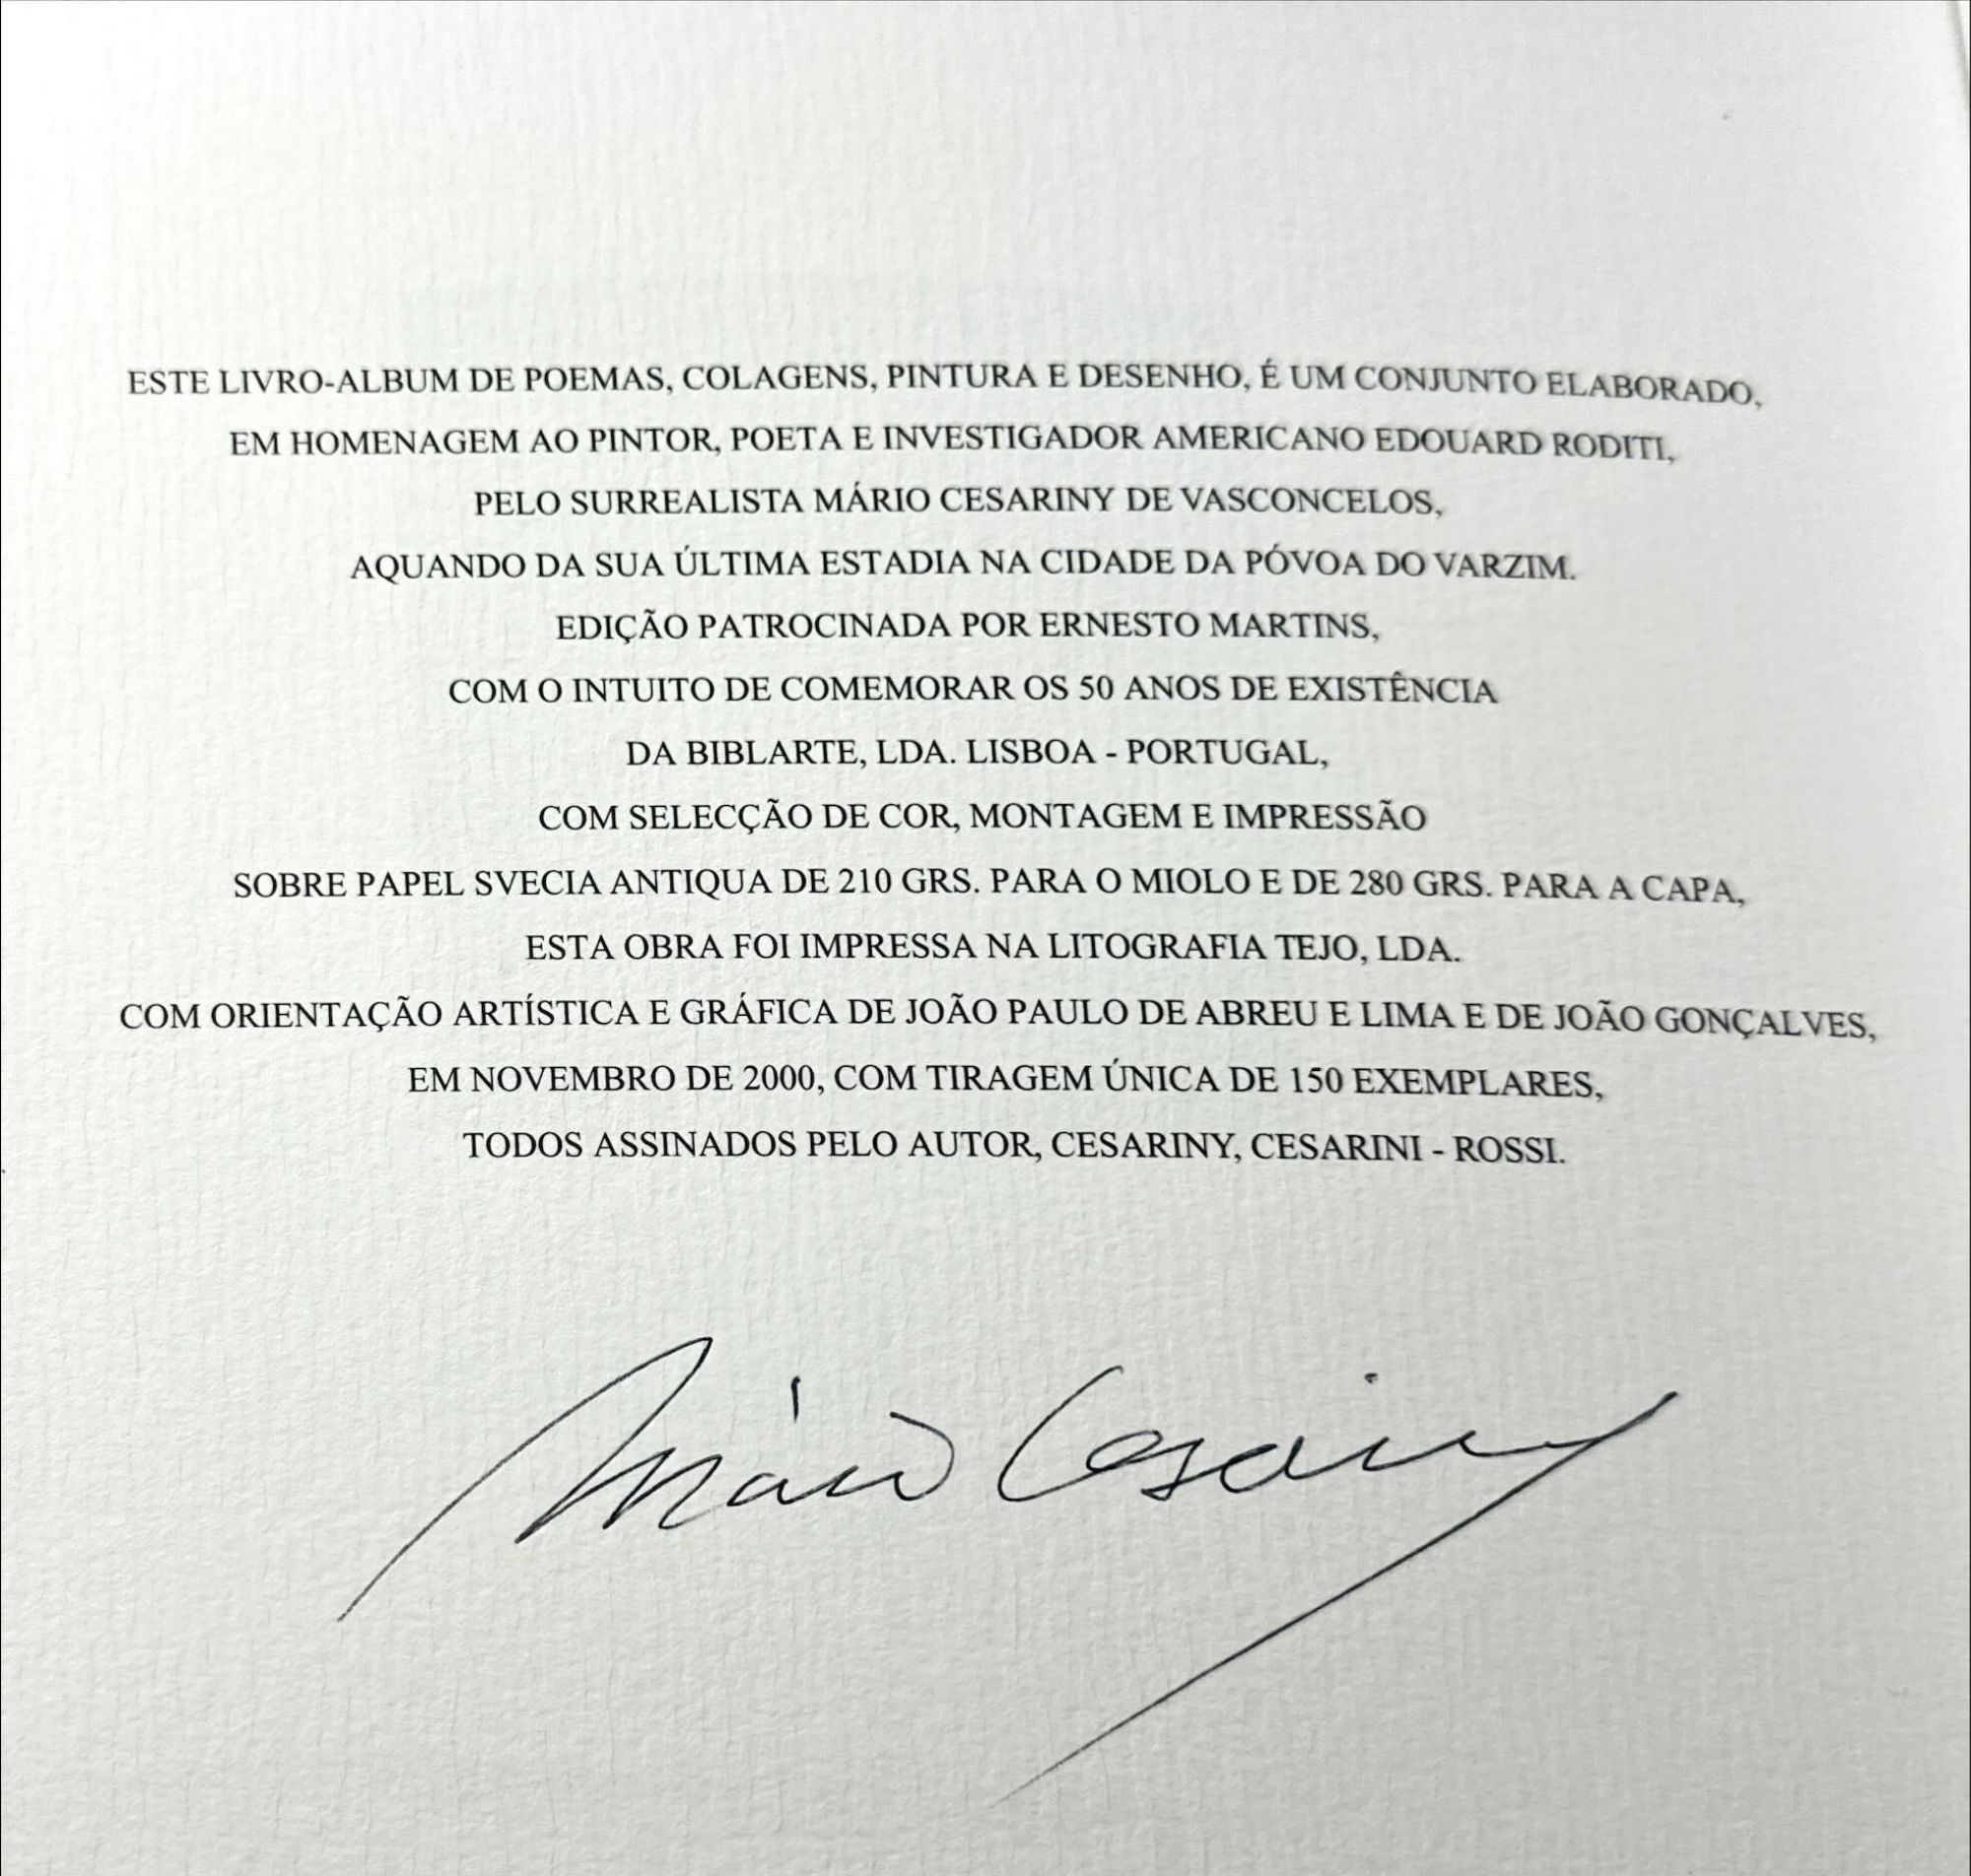 ESTE LIVRO-ALBUM DE POEMAS, COLAGENS, PINTURA E DESENHO, É UM CONJUNTO ELABORADO,
EM HOMENAGEM AO PINTOR, POETA E INVESTIGADOR AMERICANO EDOUARD RODITI,
PELO SURREALISTA MÁRIO CESARINY DE VASCONCELOS,
AQUANDO DA SUA ÚLTIMA ESTADIA NA CIDADE DA PÓVOA DO VARZIM.
EDIÇÃO PATROCINADA POR ERNESTO MARTINS,
COM O INTUITO DE COMEMORAR OS 50 ANOS DE EXISTÊNCIA
DA BIBLARTE, LDA. LISBOA - PORTUGAL,
COM SELECÇÃO DE COR, MONTAGEM E IMPRESSÃO
SOBRE PAPEL SVECIA ANTIQUA DE 210 GRS. PARA O MIOLO E DE 280 GRS. PARA A CAPA,
ESTA OBRA FOI IMPRESSA NA LITOGRAFIA TEJO, LDA.
COM ORIENTAÇÃO ARTÍSTICA E GRÁFICA DE JOÃO PAULO DE ABREU E LIMA E DE JOÃO GONÇALVES,
EM NOVEMBRO DE 2000, COM TIRAGEM ÚNICA DE 150 EXEMPLARES,
TODOS ASSINADOS PELO AUTOR, CESARINY, CESARINI - ROSSI.
Mário Cesariny